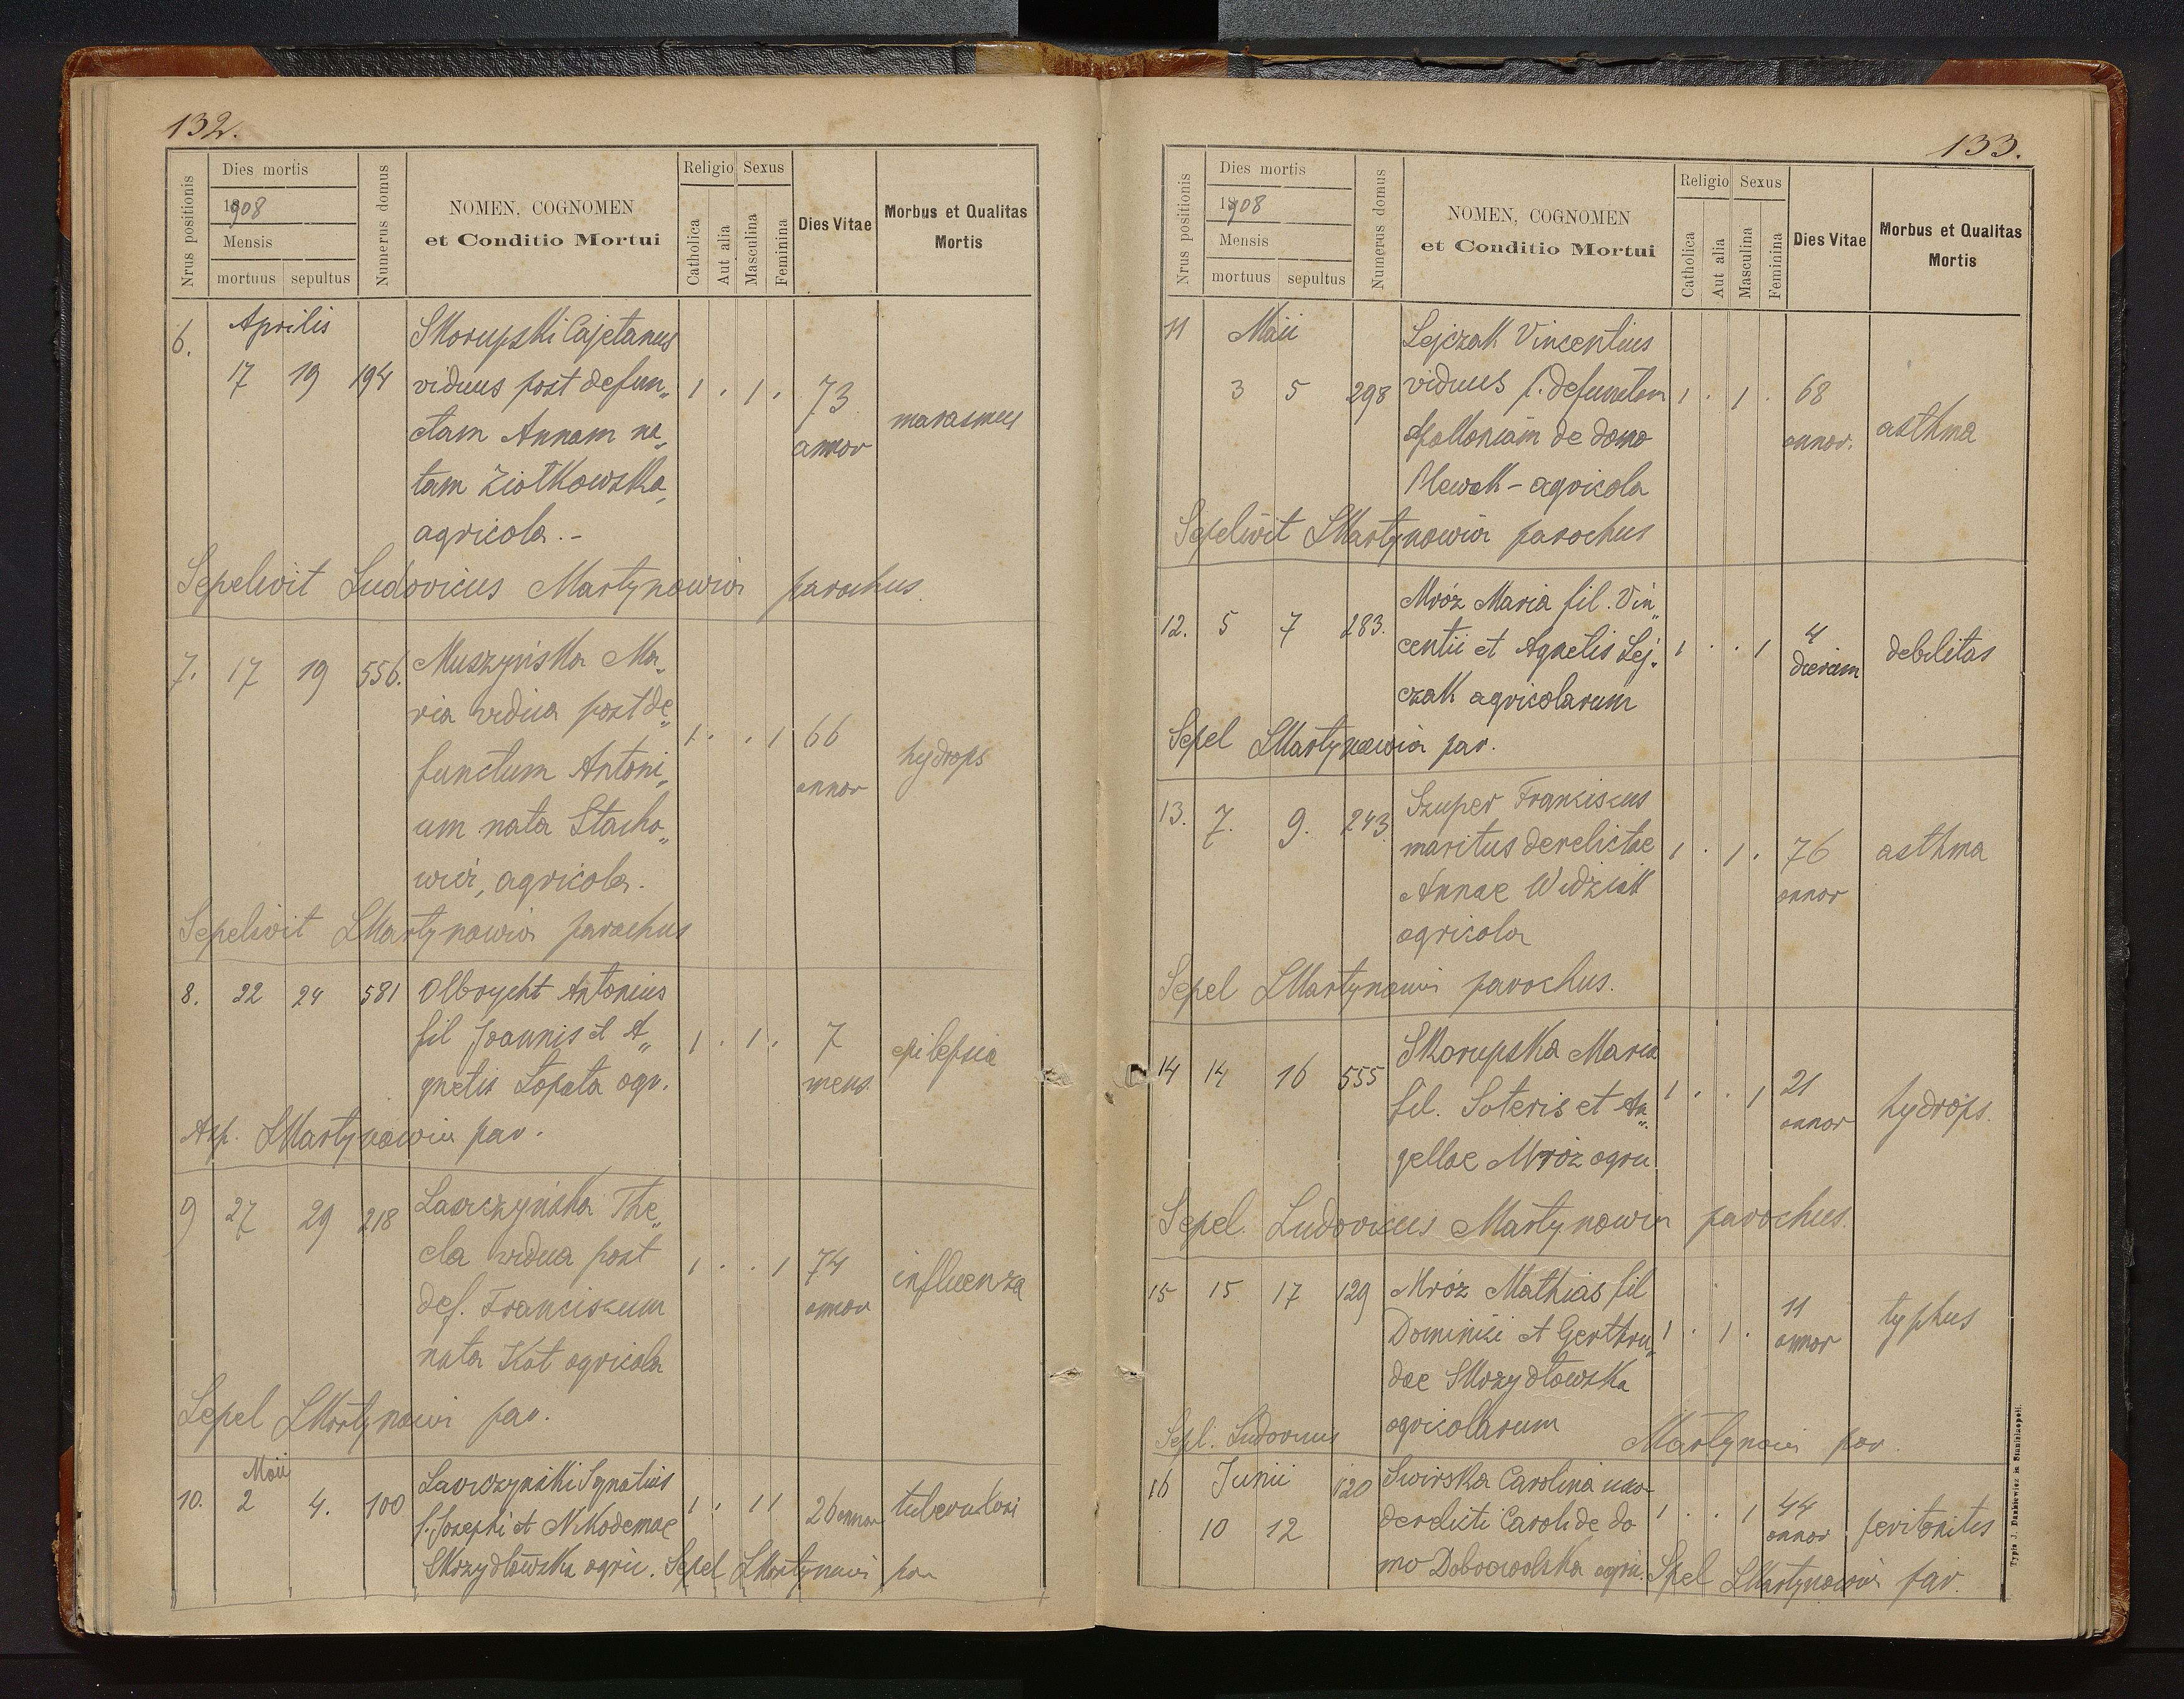 132.
Nrus positionis
Dies mortis
1908
Mensis
mortuus sepultus
Numerus domus
NOMEN, COGNOMEN
et Conditio Mortui
Religio
Catholica
Aut alia
Sexus
Masculina
Feminina
Dies Vitae
Morbus et Qualitas
Mortis
6. Aprilis Skorupski Cajetanus
17 19 194 viduus post defun„ 1 . 1 . 73
ctam Annam na„ annor marasmus
tam Ziołkowska,
agricola.-
Sepelivit Ludovicus Martynowicz parochus.
7. 17 19 556. Muszyńska Ma„
ria vidua post de„ 1 . . 1 66
functum Antoni„ annor hydrops
um nata Stacho„
wicz, agricola.
Sepelivit LMartynowicz parochus
8. 22 24 581 Olbrycht Antonius
fil Joannis et A„ 1 . 1 . 7 epilepsia
gnetis Łopata agr. mens.
LMartynowicz par.
9 27 29 218 Laorczyńska The„
cla vidua post 1 . . 1 74 influenza
def. Franciscum annor
nata Kot agricola
Sepel LMartynowicz par.
Maii
10. 2 4. 100 Laorczyński Ignatius 1 . 1 1 26 annor
f. Josephi et Nikodemae
Skrzydłowska agric. Sepel LMartynowicz par
133.
Nrus positionis
Dies mortis
1908
Mensis
mortuus sepultus
Numerus domus
NOMEN, COGNOMEN
et Conditio Mortui
Religio
Catholica
Aut alia
Sexus
Masculina
Feminina
Dies Vitae
Morbus et Qualitas
Mortis
11 Maii Lejczak Vincentius
3 5 298 viduus p. defunctam 1 . 1 . 68
Apolloniam de domo annor. asthma
Plewak - agricola
Sepelivit LMartynowicz parochus
Mróz Maria fil. Vin„
12. 5 7 283. centii et Agnetis Lej- 1 . . 1 4 dierum debilitas
czak agricolarum
Sepel LMartynowicz par.
13. 7. 9. 243. Szuper Franciscus
maritus derelictae 1 . 1 . 76 asthma
Annae Widziak annor
agricola
Sepel LMartynowicz parochus.
14 14 16 555 Skorupska Maria
fil. Soteris et An„ 1 . . 1 21 annor hydrops.
gellae Mróz agric.
Sepel. Ludovicus Martynowicz parochus.
15 15 17 129 Mróz Mathias fil
Dominici et Gerthru„ 1 . 1 . 11 annor typhus
dae Skrzydłowska
agricolarum
Sepl. Ludovicus Martynowicz par.
16 Junii 120 Swirska Carolina uxor
10 12 derelicti Caroli de do 1 . . 1 44 annor peritonitis
mo Dobrowolska agric. Spel LMartynowicz par.
Typis J. Dankiewicz in Stanislaopoli.